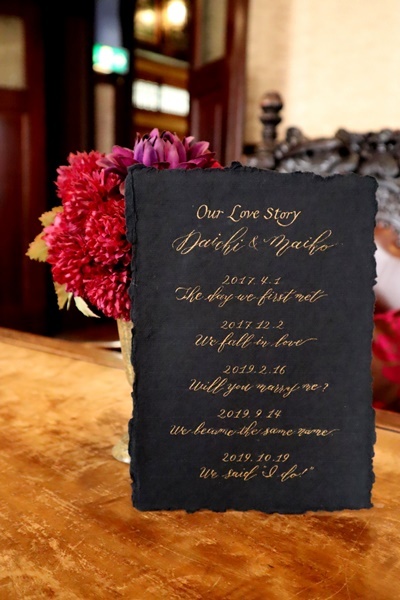 Our Love Story
Daichi & Maiko
2017.4.1
The day we first met
2017.12.2
We fall in love
2019.2.16
Will you marry me?
2019.9.14
We became the same name
2019.10.19
We said "I do!"